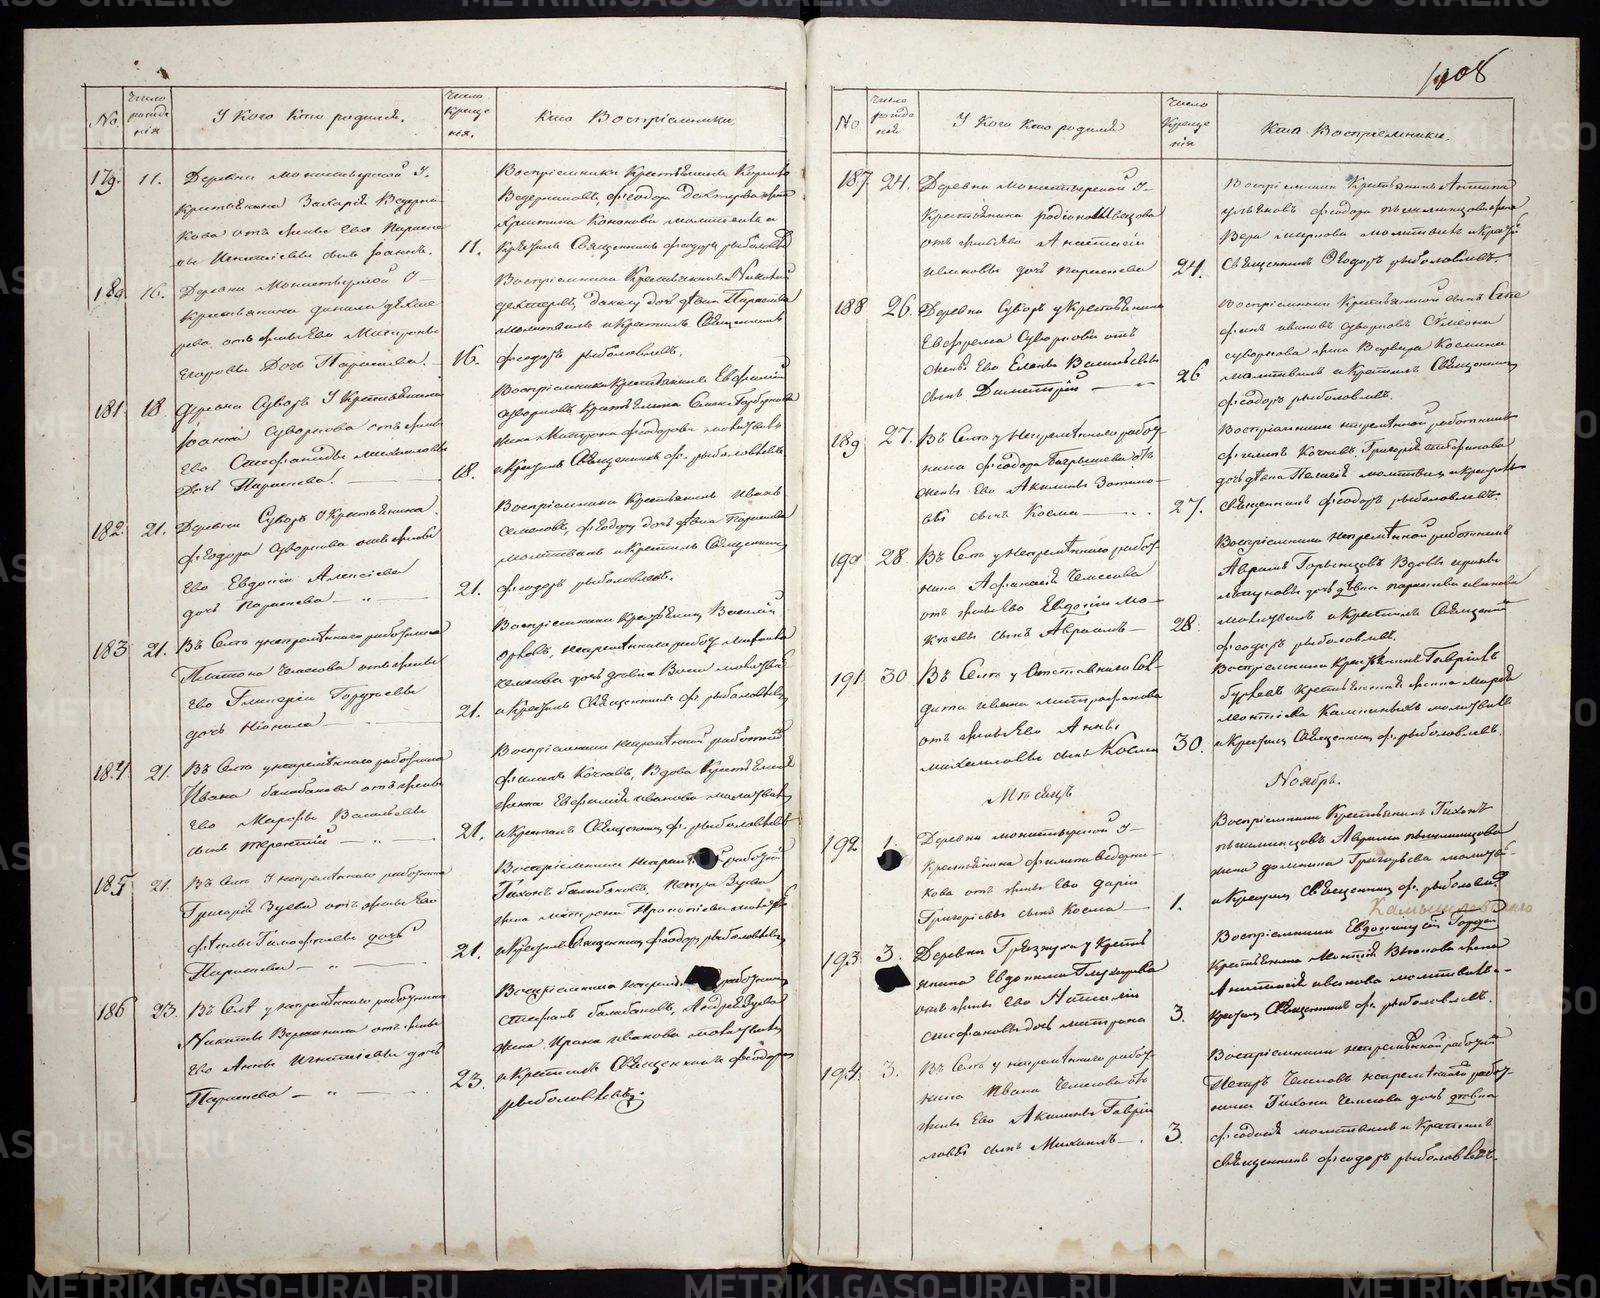 1408
No
Число рожде нія
У Кого Кто родился.
Число Креще нія.
Кто Воспріемники.
179. 11. Деревни Монастырской У
Крестьянина Захарія Ведерни
кова отъ жены Его Параске
вы Игнатіевы сынъ Іоаннъ. 11.
Воспріемники Крестьянинъ
Ведерниковъ, Феодора Дехтярева жена
Христина Кононова молитвилъ и
Крестилъ Священникъ Феодоръ рыболовлевъ
180. 16. Деревни Монастырской У
Крестьянина Данила Дехте
рева отъ жены Его Матроны
Егоровы Дочь Параскева. 16.
Воспріемники Крестьянинъ Николай
Дехтеревъ, Данилы дочь девка Параскева
молитвилъ и Крестилъ Священникъ
Феодоръ рыболовлевъ.
181. 18. Деревни Суворъ У Крестьянина
Іоанна Суворкова отъ жены
Его Стефаниды Михайловы
Дочь Параскева. 18.
Воспріемники Крестьянинъ Евфимій
Суворковъ Крестьянина Семена Горбунова
жена Матрона Феодорова молитвилъ
и Крестилъ Священникъ Ф. рыболовлевъ
182. 21. Деревни Суворъ У Крестьянина
Феодора Суворкова отъ жены
Его Евдокіи Алексіевы
дочь Параскева 21.
Воспріемники Крестьянинъ Иванъ
Семеновъ, Феодора дочь девка Параскева
молитвилъ и Крестилъ Священникъ
Феодоръ рыболовлевъ.
183. 21. Въ Селе у непременнаго работника
Платона Чемесова отъ жены
Его Гликеріи Гордеевы
дочь Неонила 21.
Воспріемники Крестьянинъ Василій
Орловъ, непременнаго работ.
Чемесова дочь девка молитвилъ
и Крестилъ Священникъ Ф. рыболовлевъ
184. 21. Въ Селе у непременнаго работника
Ивана Балабанова отъ жены
Его Марфы Васильевы
сынъ Терентій 21.
Воспріемники непременной работникъ
Филипъ Кочневъ, Вдова Крестьянская
жена Евфимія Иванова молитвилъ
и Крестилъ Священникъ Ф. рыболовлевъ
185. 21. Въ Селе У непременнаго работника
Григорія Зуева отъ жены Его
Феклы Тимофеевы дочь
Параскева 21.
Воспріемники непременной работникъ
Тихонъ Балабановъ, Петра Зуева
жена Матрена Прокопіева молитвилъ
и Крестилъ Священникъ Феодоръ рыболовлевъ
186. 23. Въ Селе у непременнаго работника
Никиты Вершинина отъ жены
Его Анны Игнатіевы дочь
Параскева 23.
Воспріемники непременной работникъ
Стефанъ Балабановъ, Андрея Зуева
жена Ирина Иванова молитвилъ
и Крестилъ Священникъ Феодоръ
рыболовлевъ.
No
Число рожде нія
У Кого Кто родился
Число Креще нія
Кто Воспріемники.
187. 24. Деревни Монастырской У
Крестьянина Родіона Швецова
отъ жены Его Анастасіи
Ивановы дочь Параскева 24.
Воспріемники Крестьянинъ Антипа
Ульяновъ Феодора Пышминцова жена
Вера Миронова молитвилъ и Крестилъ
Священникъ Феодоръ рыболовлевъ
188. 26. Деревни Суворъ у Крестьянина
Евфрема Суворкова отъ
жены Его Елены Васильевы
сынъ Димитрій 26
Воспріемники Крестьянской сынъ Сте
фанъ Ивановъ Суворковъ Симеона
Суворкова жена Варвара Космина
молитвилъ и Крестилъ Священникъ
Феодоръ рыболовлевъ.
189. 27. Въ Селе у Непременнаго работ
ника Феодора Багрышева отъ
жены Его Акилины Зотико
вы сынъ Косма 27.
Воспріемники непременной работникъ
Филипъ Кочневъ, Григорія Стефанова
дочь девка Пелагія молитвилъ и Крестилъ
Священникъ Феодоръ рыболовлевъ.
190. 28. Въ Селе у Непременнаго работ
ника Афанасія Чемесова
отъ жены Его Евдокіи Мо
кеевы сынъ Авраамъ 28.
Воспріемники непременной работникъ
Авраамъ Горынцовъ Вдовы Ирины
дочь девка Параскева Иванова
молитвилъ и Крестилъ Священникъ
Феодоръ рыболовлевъ.
191. 30 Въ Селе у Отставнаго Сол
дата Ивана Митрофанова
отъ жены Его Анны
Михайловы сынъ Косма 30.
Воспріемники Крестьянинъ Гавріилъ
Бурковъ Крестьянская жена Марфа
молитвилъ
и Крестилъ Священникъ Ф. рыболовлевъ.
Месяцъ Ноябрь.
192 1. Деревни Монастырской У
Крестьянина Филипа Ведерни
кова отъ жены Его Даріи
Григоріевы сынъ Косма 1.
Воспріемники Крестьянинъ Тихонъ
Пышминцовъ Авраама Пышминцова
жена Домника Григорьева молитвилъ
и Крестилъ Священникъ Ф. рыболовлевъ
193. 3. Деревни Грязнухи у Кресть
янина Евдокима Глухарева
отъ жены Его Наталіи
Стефановы дочь Матрона 3.
Воспріемники
Крестьянина Вьюхова жена
Анастасія Иванова молитвилъ
Крестилъ Священникъ Ф. рыболовлевъ.
194. 3. Въ Селе у непременнаго работ
ника Ивана Чемесова отъ
жены Его Акилины Гаврии
ловы сынъ Михаилъ 3.
Воспріемники непременной работникъ
Петръ Чемесовъ непременнаго работ
ника Тихона Чемесова дочь девка
Феодосія молитвилъ и Крестилъ
Священникъ Феодоръ рыболовлевъ.
METRIKI.GASO-URAL.RU